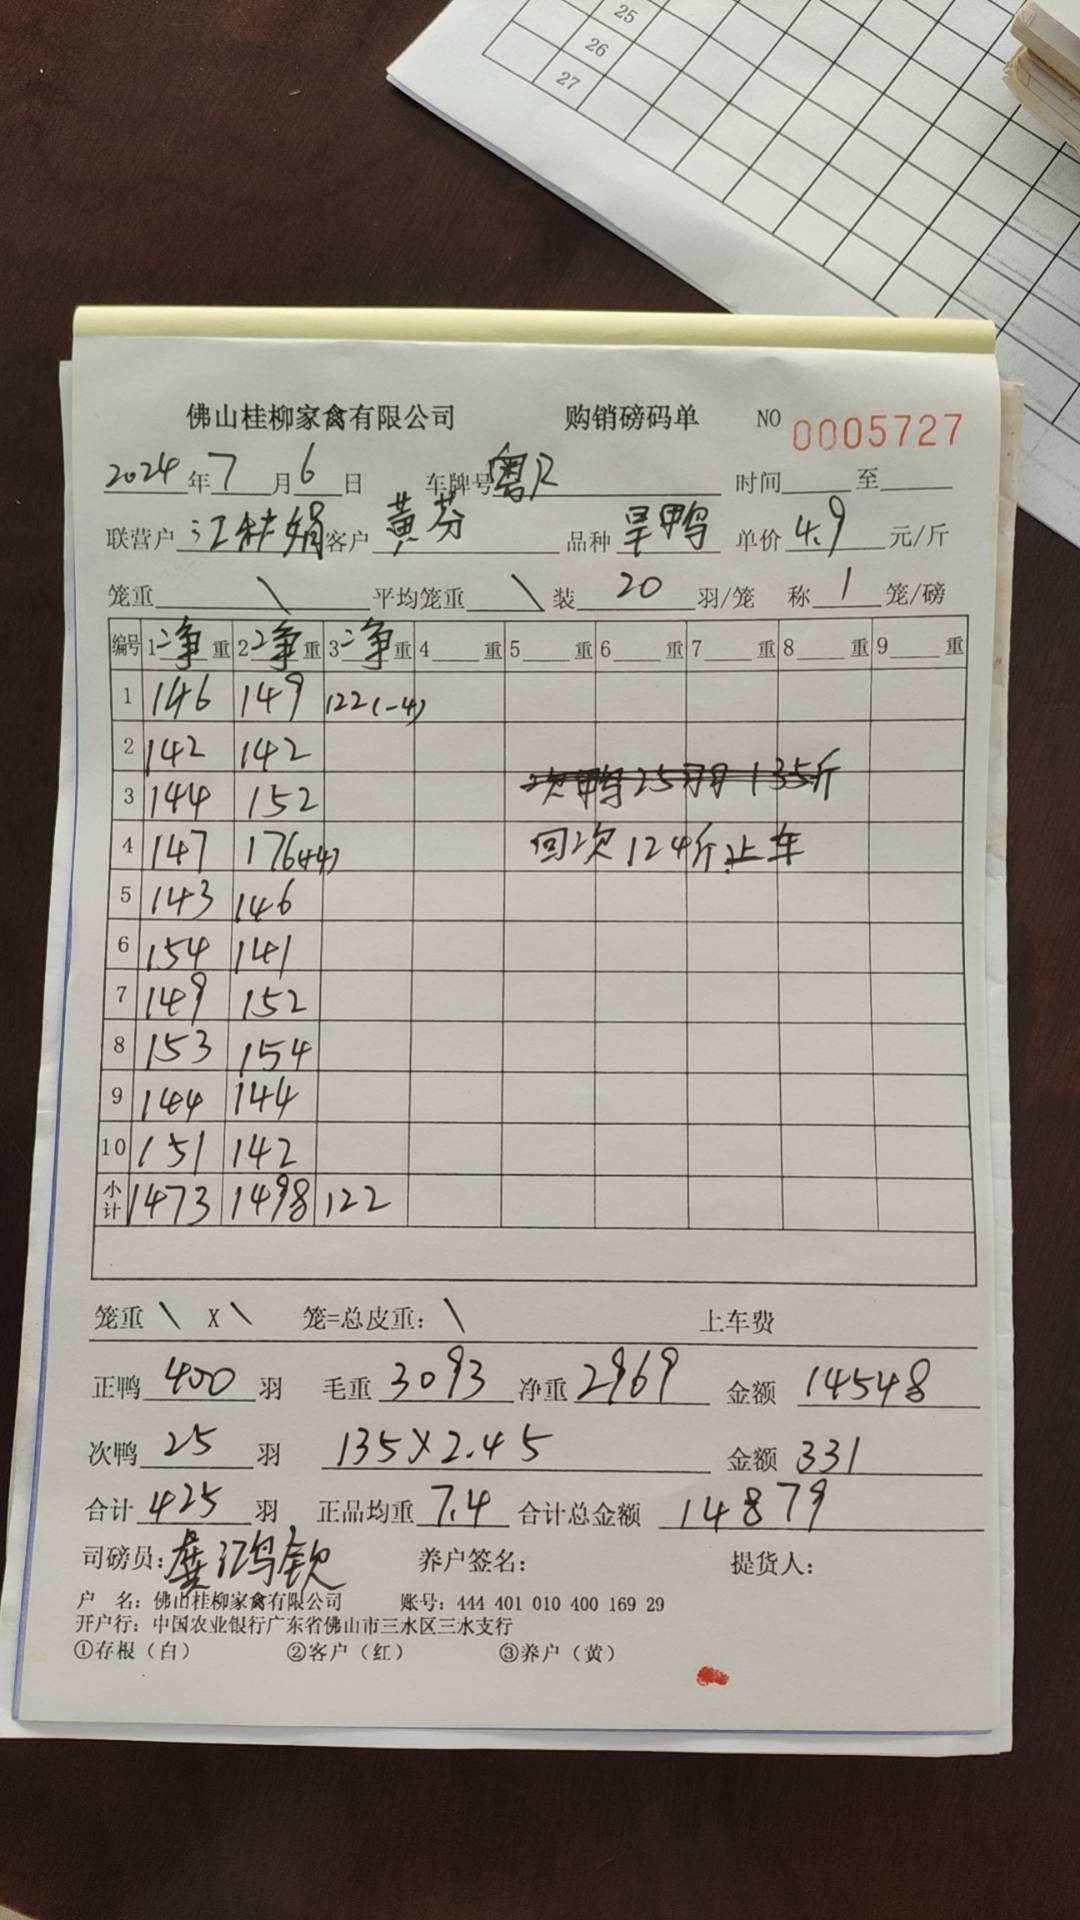 25
26
27
佛山桂柳家禽有限公司 购销磅码单 NO 0005727
2024年7月6日 车牌号 粤 时间 至
联营户 江桂娟 客户 黄芬 品种 旱鸭 单价 4.9 元/斤
笼重 \ 平均笼重 \ 装 20 羽/笼 称 1 笼/磅
编号 1 净 重 2 净 重 3 净 重 4 重 5 重 6 重 7 重 8 重 9 重
1 146 149 122(-4)
2 142 142
3 144 152 次鸭25羽135斤
4 147 176(+4) 回次124斤上车
5 143 146
6 154 141
7 149 152
8 153 154
9 144 144
10 151 142
小计 1473 1498 122
笼重 \ X \ 笼=总皮重： \ 上车费
正鸭 400 羽 毛重 3093 净重 2969 金额 14548
次鸭 25 羽 135X2.45 金额 331
合计 425 羽 正品均重 7.4 合计总金额 14879
司磅员：龚鸿钦 养户签名： 提货人：
户 名：佛山桂柳家禽有限公司 账号：444 401 010 400 169 29
开户行：中国农业银行广东省佛山市三水区三水支行
①存根（白） ②客户（红） ③养户（黄）